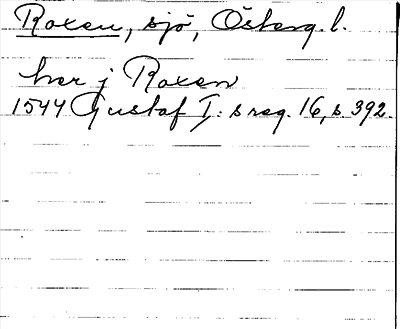 Roxen, sjö, Österg. l.
hær j Roxen
1544 Gustaf I:s reg. 16, s. 392.